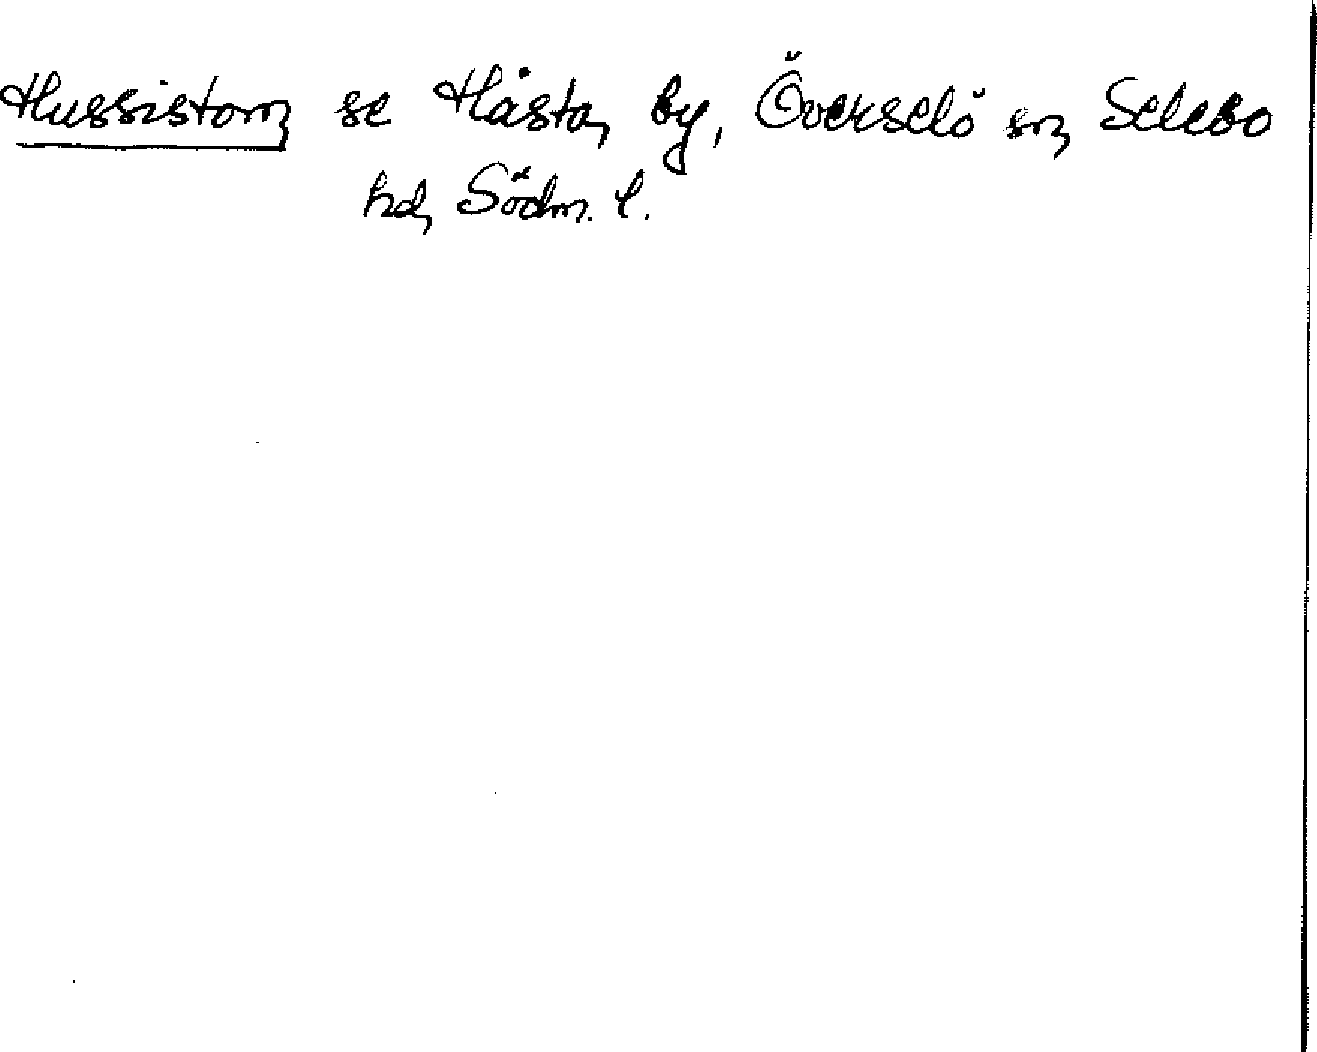 Hussistom, se Håsta, by, Överselö sn, Selebo
hd, Södm. l.